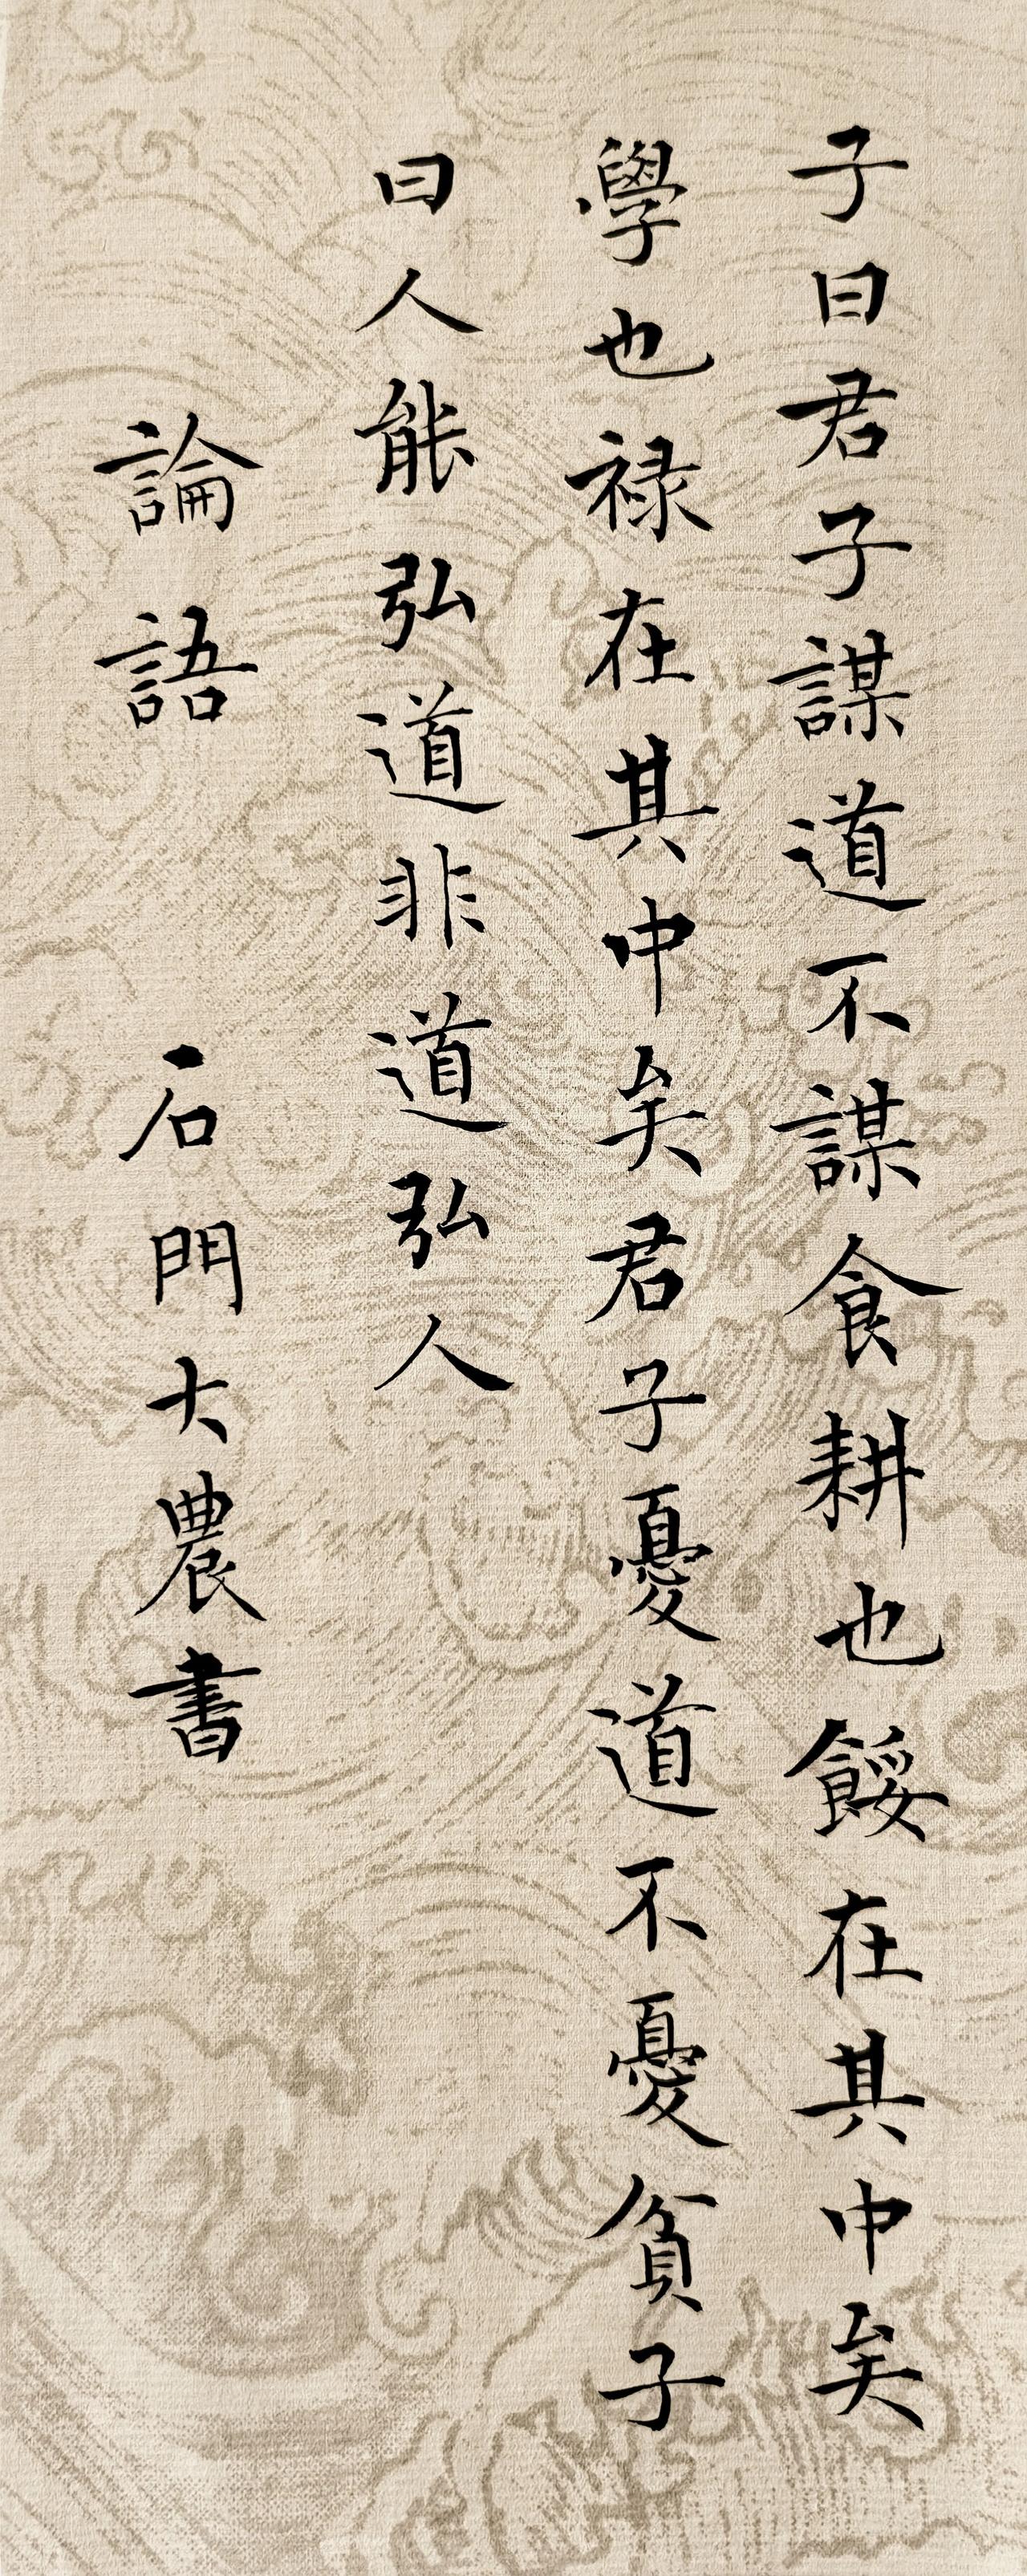 子曰君子謀道不謀食耕也餒在其中矣
學也禄在其中矣君子憂道不憂貧子
曰人能弘道非道弘人
論語 石門大農書